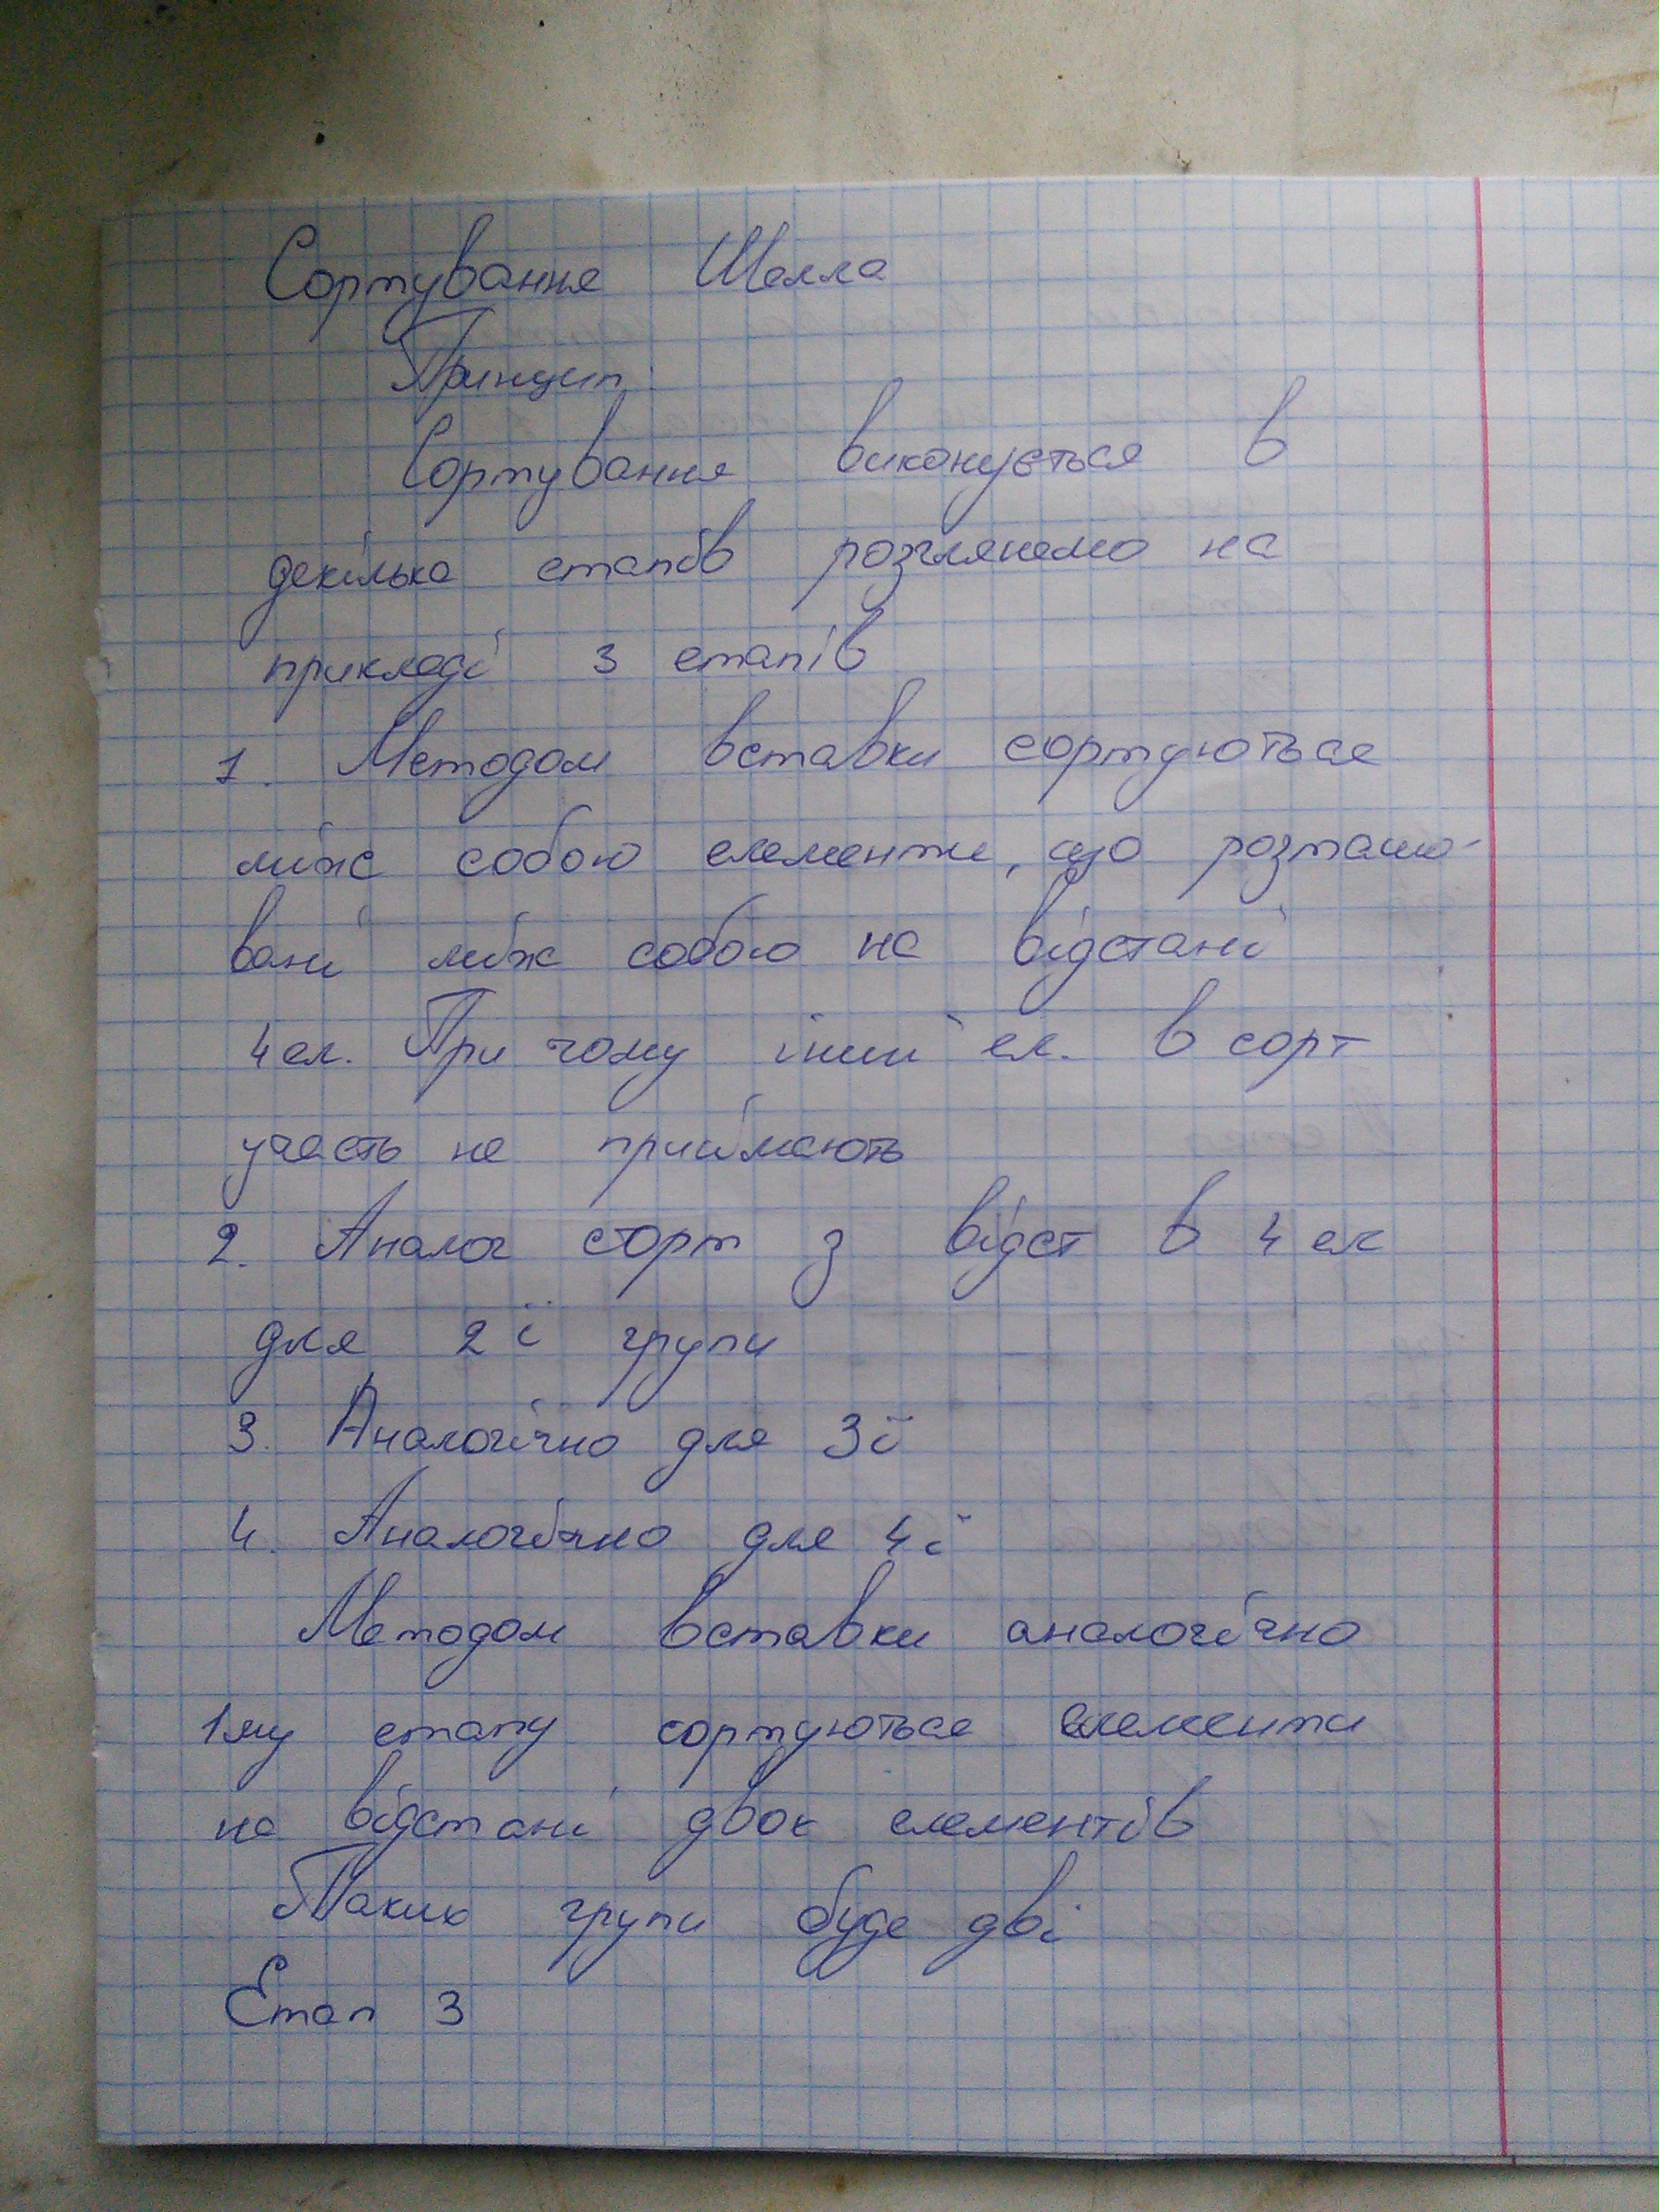 Сортування Шелла
Принцип:
Сортування виконується в
декілька етапів розглянемо на
прикладі 3 етапів
1. Методом вставки сортуються
між собою елементи, що розташо-
вані між собою на відстані
4 ел. При чому інші ел. в сорт
участь не приймають
2. Аналог сторт з відст в 4 ел
для 2ї групи
3. Аналогічно для 3ї
4. Аналогічно для 4ї
Методом вставки аналогічно
1му етапу сортуються елементи
на відстані двох елементів
Таких групи буде дві
Етап 3